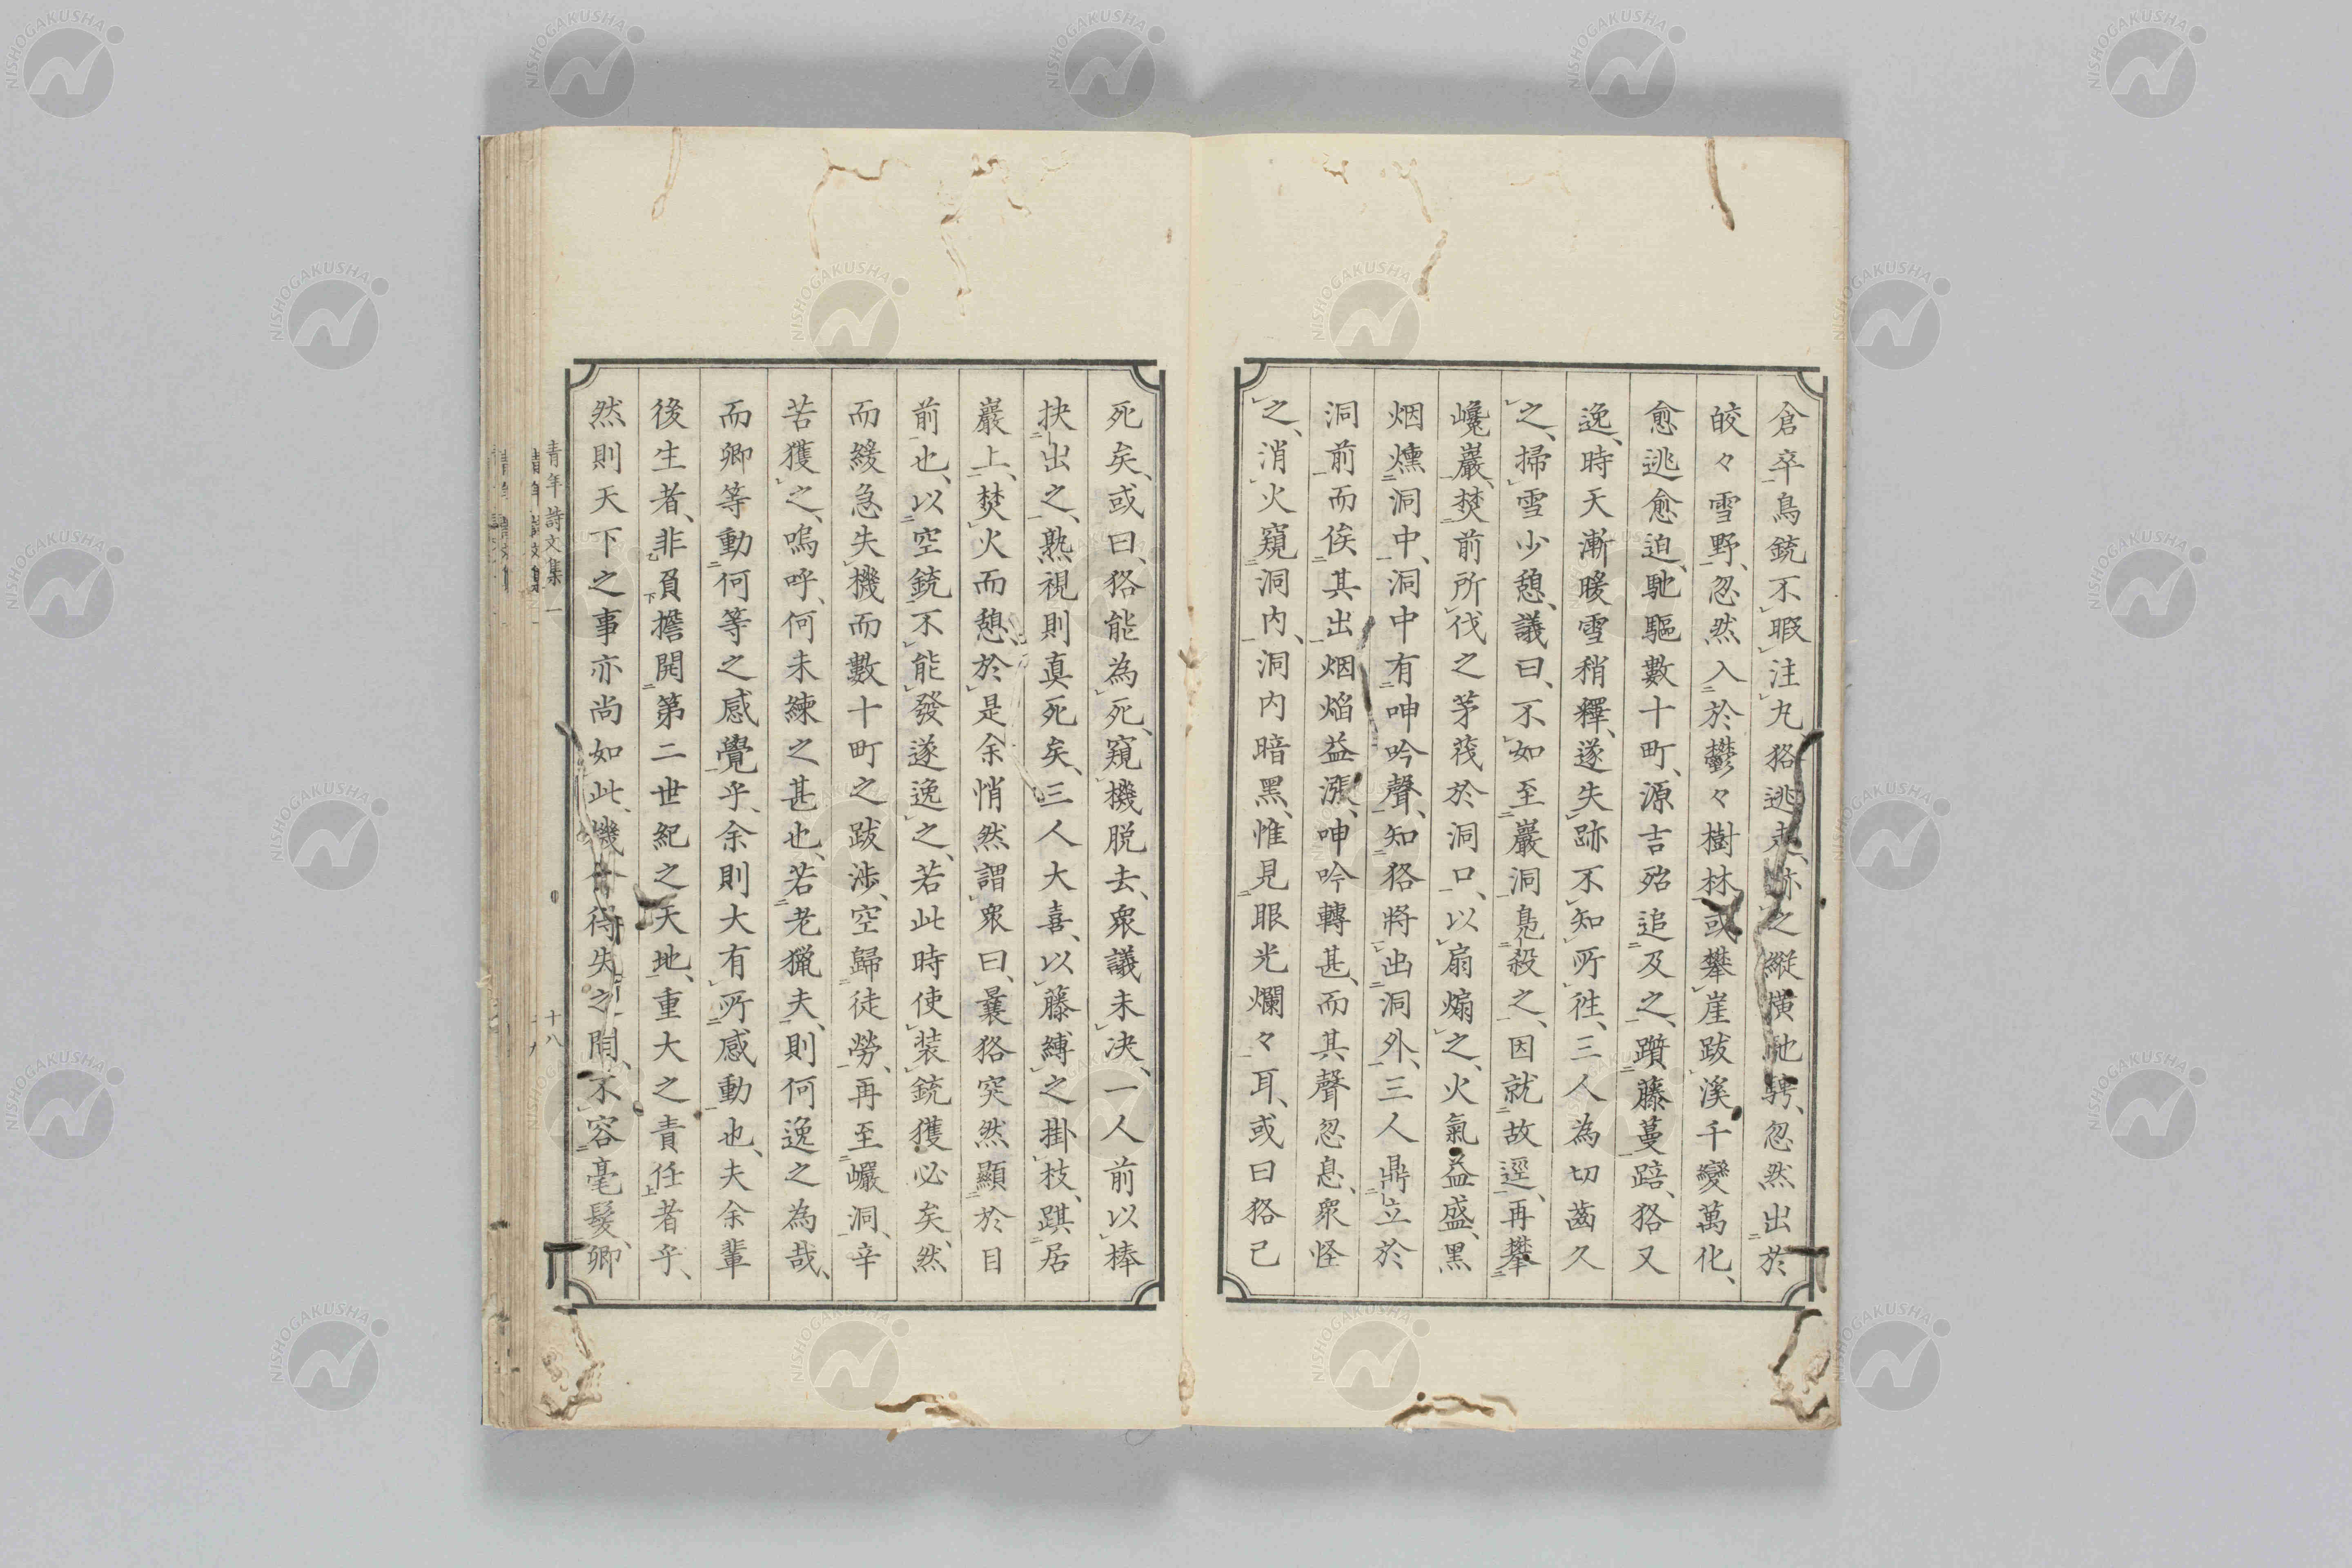 倉卒鳥銃不暇注丸狢逃走、跡之縱横馳騁、忽然出於
皎々雪野、忽然入於鬱々樹林、或攀崖跋溪、千變萬化、
愈逃愈迫、馳驅數十町、源吉殆追及之、躓藤蔓踣、狢又
逸、時天漸暖雪稍釋、遂失跡不知所徃、三人為切齒久
之、掃雪少憩、議曰、不如至巖洞鳧殺之、因就故逕、再攀
巉巖、焚前所伐之茅茷於洞口、以扇煽之、火氣益盛、黑
烟燻洞中、洞中有呻吟聲、知狢將出洞外、三人鼎立於
洞前而俟其出、烟焰益漲、呻吟轉甚、而其聲忽息、衆怪
之、消火窺洞内、洞内暗黑、惟見眼光爛々耳、或曰狢已
死矣、或曰、狢能為死、窺機脱去、衆議未決、一人前以棒
抉出之、熟視則真死矣、三人大喜、以藤縛之掛枝、踑居
巖上、焚火而憩、於是余悄然謂衆曰、曩狢突然顯於目
前也、以空銃不能發遂逸之、若此時使装銃獲必矣、然
而緩急失機而數十町之跋渉、空歸徒勞、再至巗洞、辛
苦獲之、嗚呼、何未練之甚也、若老獵夫、則何逸之為哉、
而卿等動何等之感覺乎、余則大有所感動也、夫余輩
後生者、非負擔開第二世紀之天地、重大之責任者乎、
然則天下之事亦尚如此、機會得失之間、不容毫髮、卿
青年詩文集 一
十八
NISHOGAKUSHA